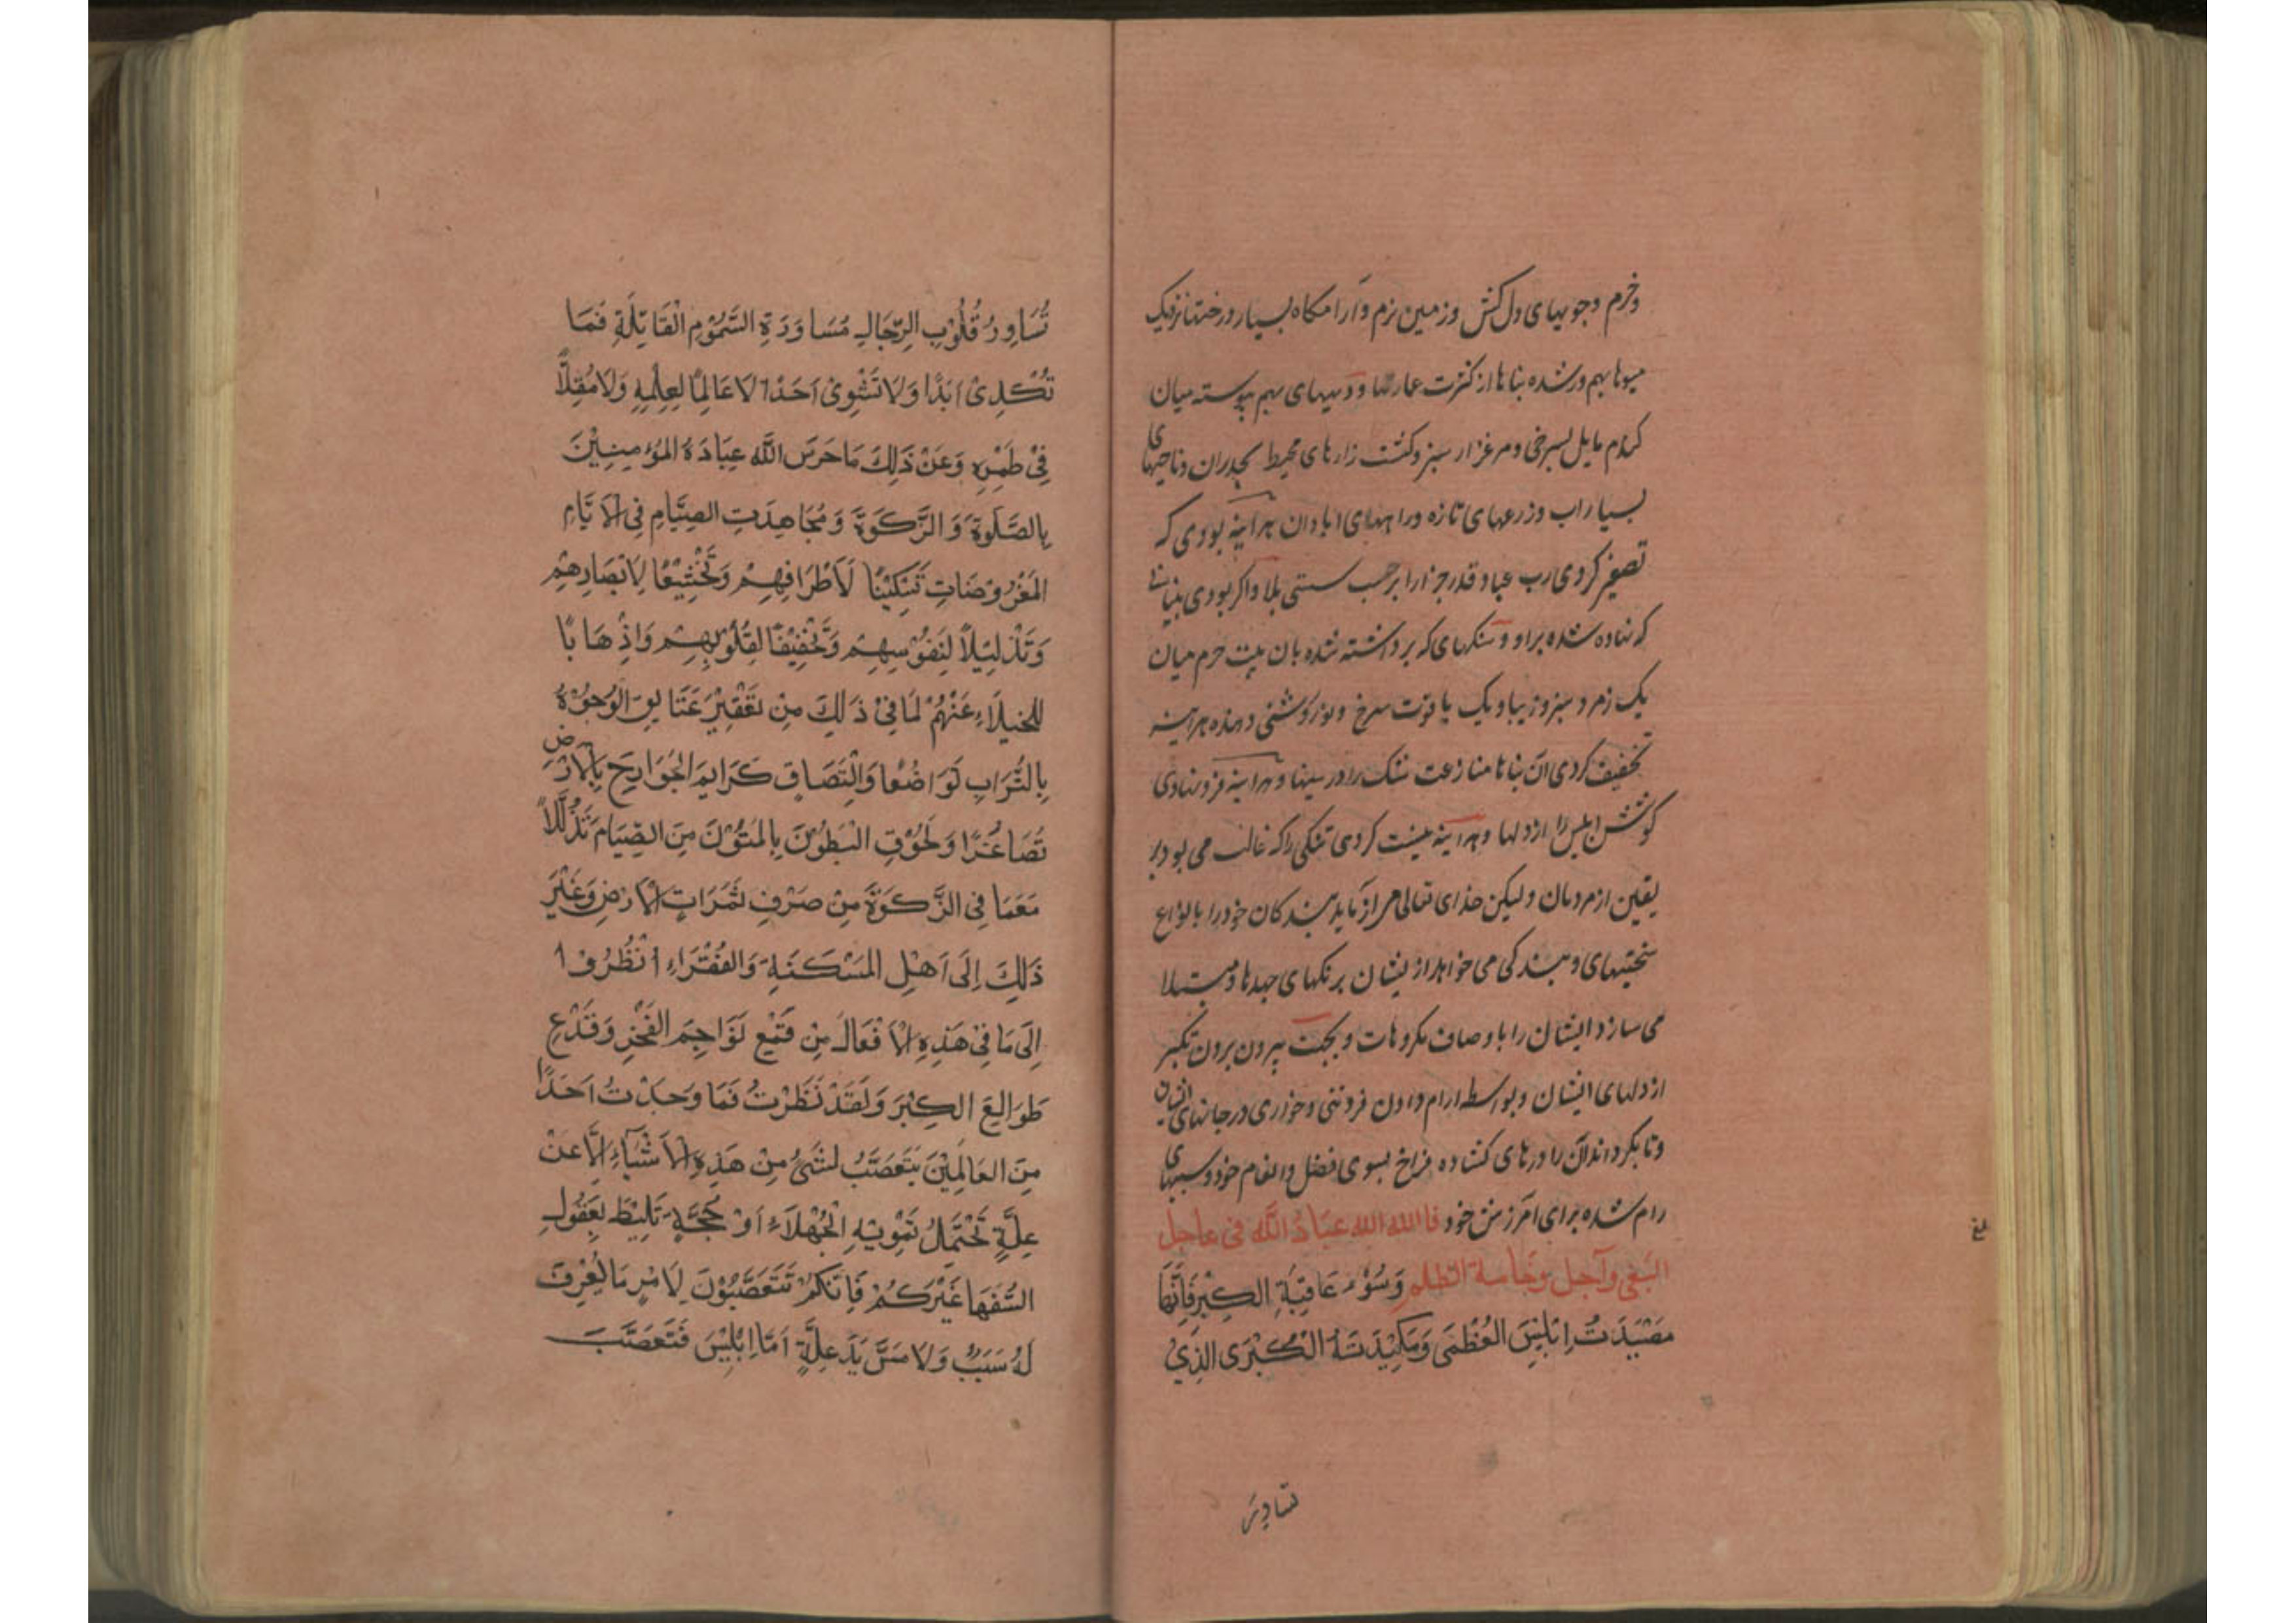 وخرم وجویهای دل کش وزمین نرم وآرامکاه بسیار درختها نزدیک
میوها بهم ورشده بناها از کثرت عمارتها و دیبهای بهم پیوسته میان
کندم مایل بسرخی ومرغزار سبز وکشت زارهای محیط بجدران وناحیهای
بسیار اب وزرعهای تازه وراههای ابادان هراینه بودی که
تصغیر کردی رب عباد قدر جزا را بر حسب سستی بلا واکر بودی بنیانی
که نهاده شده بر او و سنکهای که برداشته شده بان بیت حرم میان
یک زمرد سبز وزیبا ویک یاقوت سرخ ونور روشنی دهنده هراینه
تخفیف کردی ان بناها منازعت شک را در سینها وهراینه فرو نهادی
کوشش ابلیس را از دلها وهراینه نیست کردی تنکی را که غالب می بود بر
یقین از مردمان ولیکن خدای تعالی می ازماید بندکان خود را بانواع
سختیهای و بندکی می خواهد از یشان برنکهای جهدها ومبتلا
می سازد ایشان را باوصاف مکروهات و بجهت بیرون بردن تکبر
از دلهای ایشان وبواسطه ارام دادن فروتنی وخواری در جانهای ایشان
وتا بکرداند آن را درهای کشاده فراخ بسوی فضل وانعام خود وسببهای
رام شده برای آمرزش خود فالله الله عباد الله فی عاجل
البغی وآجل وخامة الظلم وَسُوْء عَاقِبَةِ الكِبْرِ فَاِنَّهَا
مَصْيَدَتُ اِبْلِيْسَ العُظْمَى وَمَكِيْدَتَهُ الْكُبْرَى الَّذِيْ
تساور
بلغ
تُسَاوِرُ قُلُوْبِ الرِّجَالِ مُسَاوَدَةِ السَّمُوْمِ الْقَاتِلَةِ فَمَا
تُكْدِىْ اَبَدًا وَلَا تَشْوِىْ اَحَدًا لَا عَالِمًا لِعِلْمِهِ وَلَا مُقِلًّا
فِىْ طِمْرِهِ وَعَنْ ذَلِكَ مَا حَرَسَ اللّٰه عِبَادَهُ المُؤْمِنِيْنَ
بِالصَّلٰوةِ وَ الزَّكَوٰةِ وَ مُجَاهِدَتِ الصِّيَامِ فِى الْاَيَّامِ
المَفْرُوْضَاتِ تَسْكِيْنًا لَاَطْرَافِهِمْ وَتَخْشِيْعًا لِاَبْصَارِهِمْ
وَتَذْلِيْلًا لِنَفُوْسِهِمْ وَتَخْفِيْفًا لِقُلُوْبِهِمْ وَاِذْهَابًا
لِلْخُيَلَاءِ عَنْهُمْ لَمَا فِىْ ذَلِكَ مِنْ تَعْفِيْرِ عَتَايِقِ الْوُجُوْهُ
بِالتُّرَابِ تَوَاضُعًا وَالْتِصَاقِ كَرَايِمَ الْجَوَارِحِ بِالْاَرْضِ
تَصَاغُرًا وَلُحُوْقِ الْبَطُوْنَ بِالمُتُوْنَ مِنَ الصِّيَامِ تَذَلُّلًا
مَعَمَا فِى الزَّكَوٰةِ مِنْ صَرْفِ ثَمَرَاتِ الْاَرْضِ وَغَيْرَ
ذَلِكَ اِلَى اَهْلِ الْمَسْكَنَةِ وَالْفُقَرَاءِ اُنْظُرُوْا
اِلَى مَا فِىْ هَذِهِ الْاَفْعَالِ مِنْ قَمْعِ نَوَاجِمَ الفَخْرِ وَقَدْعِ
طَوَالِعَ الكِبْرَ وَلَقَدْ نَظَرْتُ فَمَا وَجَدْتُ اَحَدًا
مِنَ الْعَالَمِيْنَ يَتَعَصَّبُ لِشَىْءٍ مِنْ هَذِهِ الْاَشْيَاءِ اِلَّا عَنْ
عِلَّةٍ تَحْتَمِلُ تَمْوِيْهِ الْجُهَلَاءِ اَوْ حُجَّةٍ تَلِيْطُ بِعَقُوْلِ
السُّفَهَا غَيْرَكُمْ فَاِنَّكُمْ تَتَعَصَّبُوْنَ لِاَمْرٍ مَا يُعْرَفُ
لَهُ سَبَبٌ وَلَا مَسَّ يَدَ عِلَّةٍ اَمَّا اِبْلِيْسَ فَتَعَصَّبَ